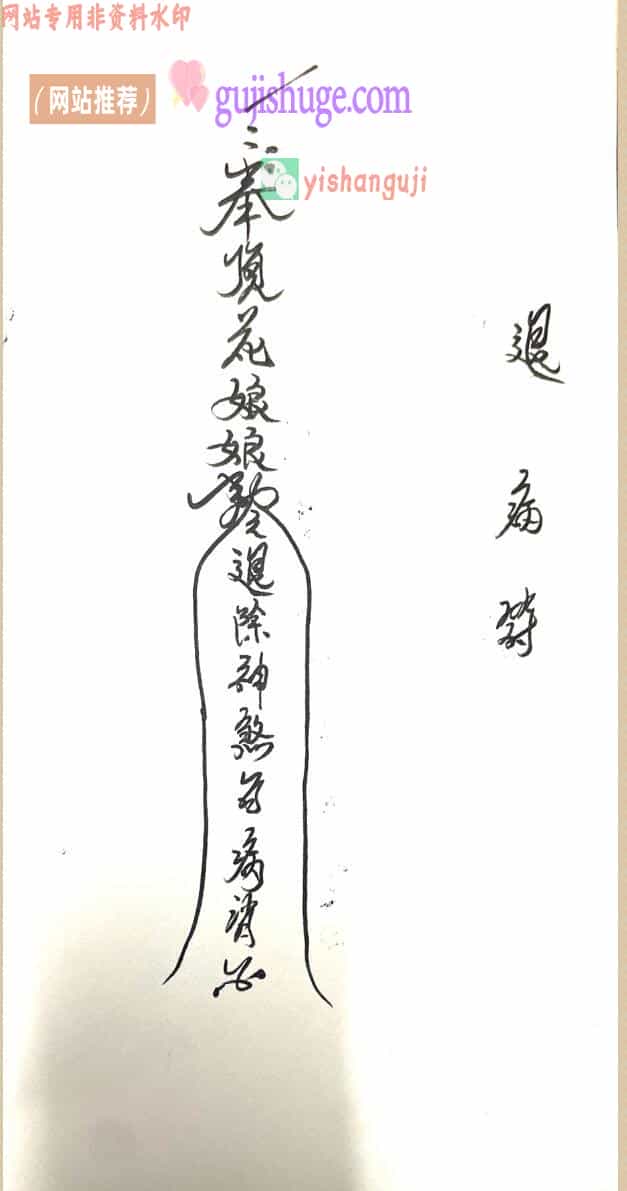 网站专用非资料水印
（网站推荐）
gujishuge.com
yishanguji
退病符
奉
花娘娘
退除神煞百病消